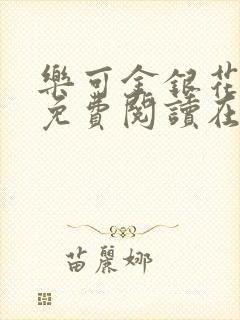 樂可金銀花
免費閱讀在
苗麗娜